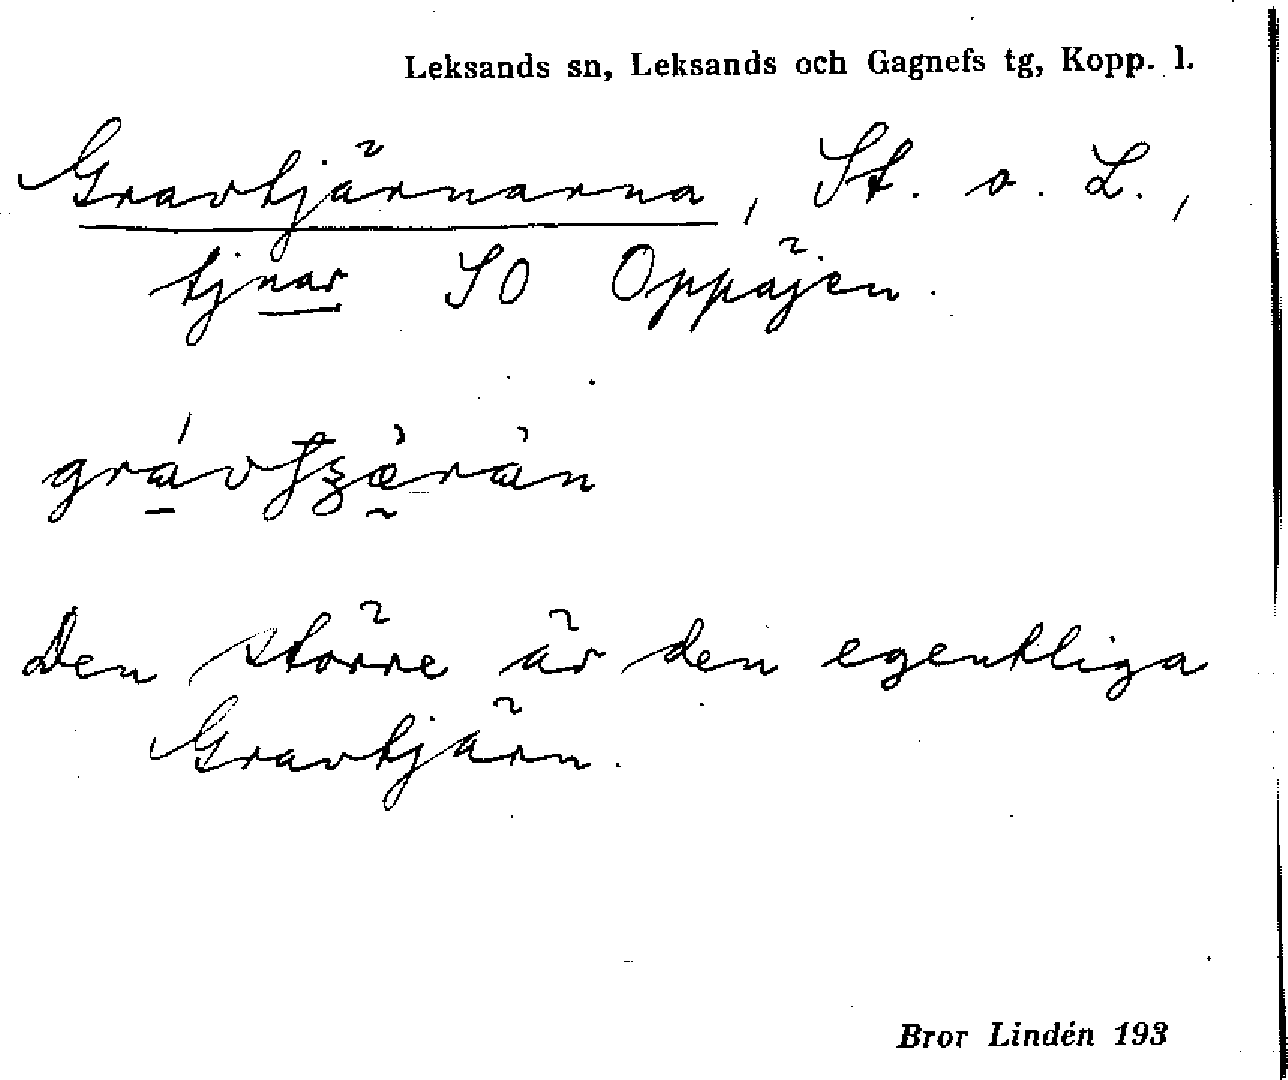 Leksands sn, Leksands och Gagnefs tg, Kopp. l.
Gravtjärnarna, St. o. L.,
tjnar SO Oppåjen.
Den större är den egentliga
Gravtjärn.
Bror Lindén 193